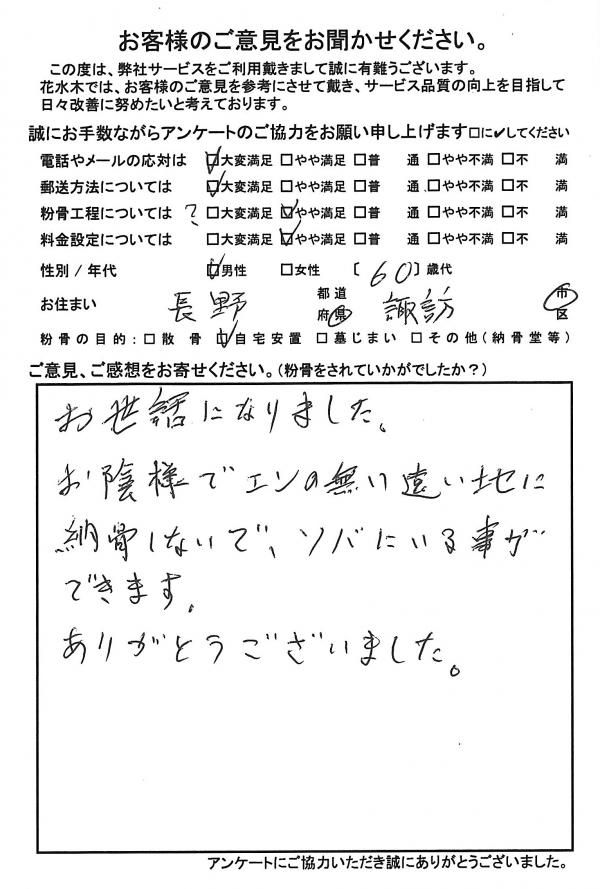 お客様のご意見をお聞かせください。
この度は、弊社サービスをご利用戴きまして誠に有難うございます。
花水木では、お客様のご意見を参考にさせて戴き、サービス品質の向上を目指して
日々改善に努めたいと考えております。
誠にお手数ながらアンケートのご協力をお願い申し上げます□に✔してください
電話やメールの応対は ☑大変満足 □やや満足 □普　通 □やや不満 □不　満
郵送方法については ☑大変満足 □やや満足 □普　通 □やや不満 □不　満
粉骨工程について ? □大変満足 ☑やや満足 □普　通 □やや不満 □不　満
料金設定については □大変満足 ☑やや満足 □普　通 □やや不満 □不　満
性別/年代 ☑男性 □女性 〔 60 〕歳代
お住まい 長野 都道府県 諏訪 市区
粉骨の目的:□散　骨 ☑自宅安置 □墓じまい □その他(納骨堂等)
ご意見、ご感想をお寄せください。(粉骨をされていかがでしたか?)
お世話になりました。
お陰様でエンの無い遠い地に
納骨しないで、ソバにいる事が
できます。
ありがとうございました。
アンケートにご協力いただき誠にありがとうございました。